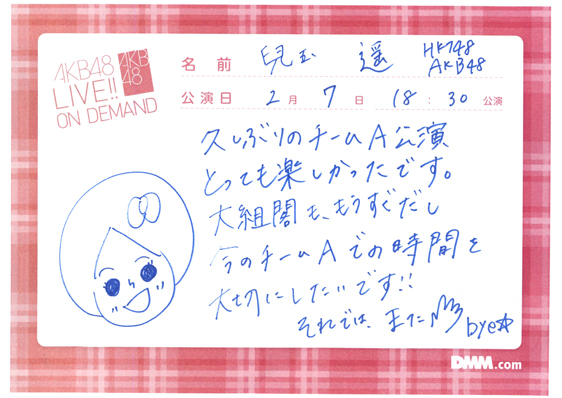 AKB48
LIVE!!
ON DEMAND
AKB
48
名前 兒玉 遥 HKT48
AKB48
公演日 2月7日 18:30公演
久しぶりのチームA公演
とっても楽しかったです。
大組閣も、もうすぐだし
今のチームAでの時間を
大切にしたいです!!
それでは、また
bye☆
DMM.com